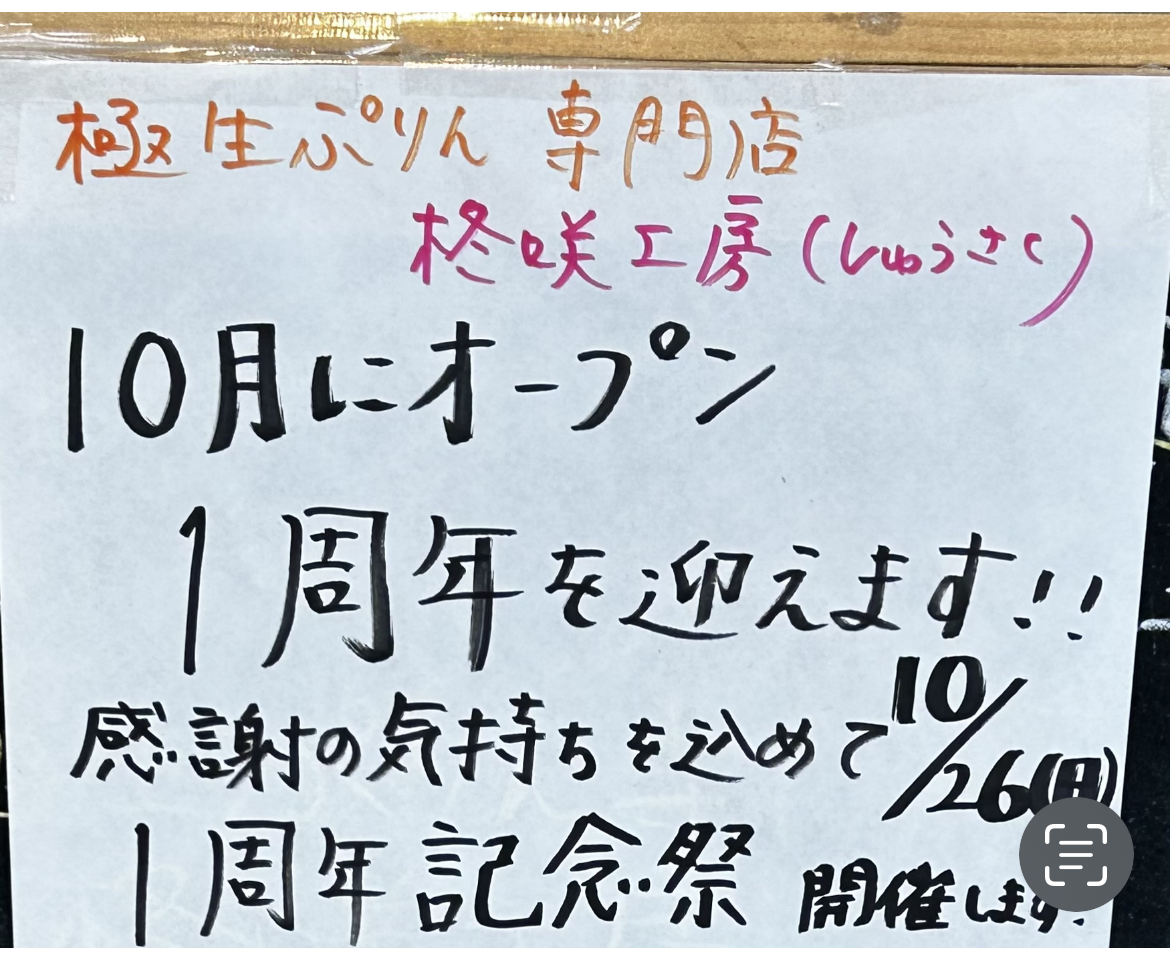 極生ぷりん 専門店
柊咲工房(しゅうさく)
10月にオープン
1周年を迎えます!!
感謝の気持ちを込めて10/26(日)
1周年記念祭 開催します!